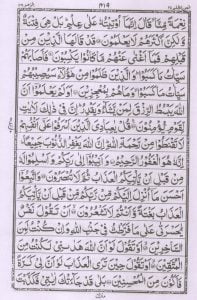 ٤١٩
نِعْمَةً مِّنَّا قَالَ اِنَّمَاۤ اُوْتِیْتُهٗ عَلٰی عِلْمٍ بَلْ هِیَ فِتْنَةٌ
وَّلٰكِنَّ اَكْثَرَهُمْ لَا یَعْلَمُوْنَ۝ قَدْ قَالَهَا الَّذِیْنَ مِنْ
قَبْلِهِمْ فَمَاۤ اَغْنٰی عَنْهُمْ مَّا كَانُوْا یَكْسِبُوْنَ۝ فَاَصَابَهُمْ
سَیِّاٰتُ مَا كَسَبُوْا وَالَّذِیْنَ ظَلَمُوْا مِنْ هٰۤؤُلَآءِ سَیُصِیْبُهُمْ
سَیِّاٰتُ مَا كَسَبُوْا وَمَا هُمْ بِمُعْجِزِیْنَ۝ اَوَلَمْ یَعْلَمُوْۤا اَنَّ
اللّٰهَ یَبْسُطُ الرِّزْقَ لِمَنْ یَّشَآءُ وَیَقْدِرُ اِنَّ فِیْ ذٰلِكَ لَاٰیٰتٍ
لِّقَوْمٍ یُّؤْمِنُوْنَ۝ قُلْ یٰعِبَادِیَ الَّذِیْنَ اَسْرَفُوْا عَلٰۤی اَنْفُسِهِمْ
لَا تَقْنَطُوْا مِنْ رَّحْمَةِ اللّٰهِ اِنَّ اللّٰهَ یَغْفِرُ الذُّنُوْبَ جَمِیْعًا
اِنَّهٗ هُوَ الْغَفُوْرُ الرَّحِیْمُ۝ وَاَنِیْبُوْۤا اِلٰی رَبِّكُمْ وَاَسْلِمُوْا لَهٗ
مِنْ قَبْلِ اَنْ یَّاْتِیَكُمُ الْعَذَابُ ثُمَّ لَا تُنْصَرُوْنَ۝ وَاتَّبِعُوْۤا
اَحْسَنَ مَاۤ اُنْزِلَ اِلَیْكُمْ مِّنْ رَّبِّكُمْ مِّنْ قَبْلِ اَنْ یَّاْتِیَكُمُ
الْعَذَابُ بَغْتَةً وَّاَنْتُمْ لَا تَشْعُرُوْنَ۝ اَنْ تَقُوْلَ نَفْسٌ
یّٰحَسْرَتٰی عَلٰی مَا فَرَّطْتُّ فِیْ جَنْۢبِ اللّٰهِ وَاِنْ كُنْتُ لَمِنَ
السّٰخِرِیْنَ۝ اَوْ تَقُوْلَ لَوْ اَنَّ اللّٰهَ هَدٰىنِیْ لَكُنْتُ مِنَ
الْمُتَّقِیْنَ۝ اَوْ تَقُوْلَ حِیْنَ تَرَی الْعَذَابَ لَوْ اَنَّ لِیْ كَرَّةً
فَاَكُوْنَ مِنَ الْمُحْسِنِیْنَ۝ بَلٰی قَدْ جَآءَتْكَ اٰیٰتِیْ فَكَذَّبْتَ